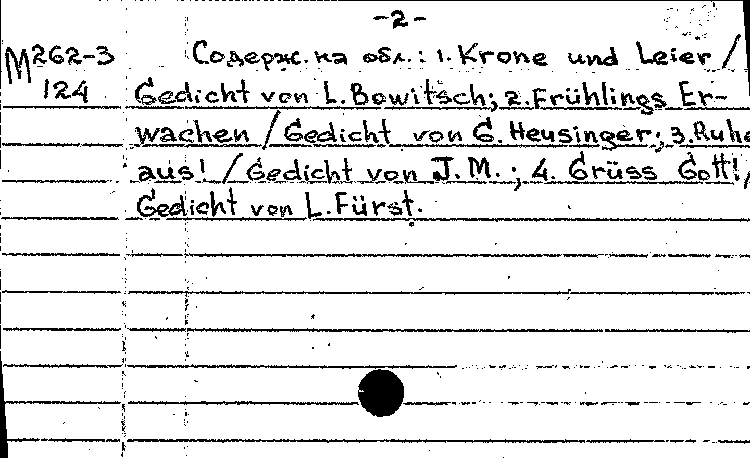 -2-
М262-3 Содерж. на обл.: 1. Krone und Leier /
124 Gedicht von L. Bowitsch; 2. Frühlings Er-
wachen / Gedicht von G. Heusinger; 3. Ruhe
aus! / Gedicht von J. M.; 4. Grüss Gott! /
Gedicht von L. Fürst.